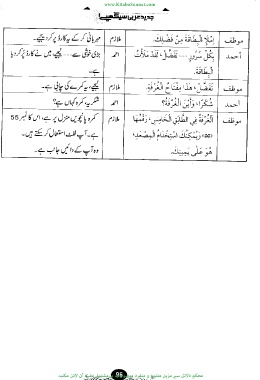 www.KitaboSunnat.com
جدید عربی سیکھیے
موظف
اِمْلَإِ الْبِطَاقَةَ مِنْ فَضْلِكَ.
ملازم
مہربانی کرکے یہ کارڈ پُر کردیجیے۔
أحمد
بِكُلِّ سُرُورٍ..... تَفَضَّلْ، لَقَدْ مَلَأْتُ
الْبِطَاقَةَ.
احمد
بڑی خوشی سے..... لیجیے، میں نے کارڈ پُر کردیا
ہے۔
موظف
تَفَضَّلْ، هَذَا مِفْتَاحُ الْغُرْفَةِ.
ملازم
لیجیے، یہ کمرے کی چابی ہے۔
أحمد
شُكْرًا، وَأَيْنَ الْغُرْفَةُ؟
احمد
شکریہ، کمرہ کہاں ہے؟
موظف
الْغُرْفَةُ فِي الطَّابِقِ الْخَامِسِ، رَقْمُهَا
(٥٥) وَيُمْكِنُكَ اسْتِخْدَامُ الْمِصْعَدِ،
هُوَ عَلَى يَمِينِكَ.
ملازم
کمرہ پانچویں منزل پر ہے، اس کا نمبر 55
ہے۔ آپ لفٹ استعمال کرسکتے ہیں۔
وہ آپ کے دائیں جانب ہے۔
96
محکم دلائل سے مزین متنوع و منفرد موضوعات پر مشتمل مفت آن لائن مکتبہ